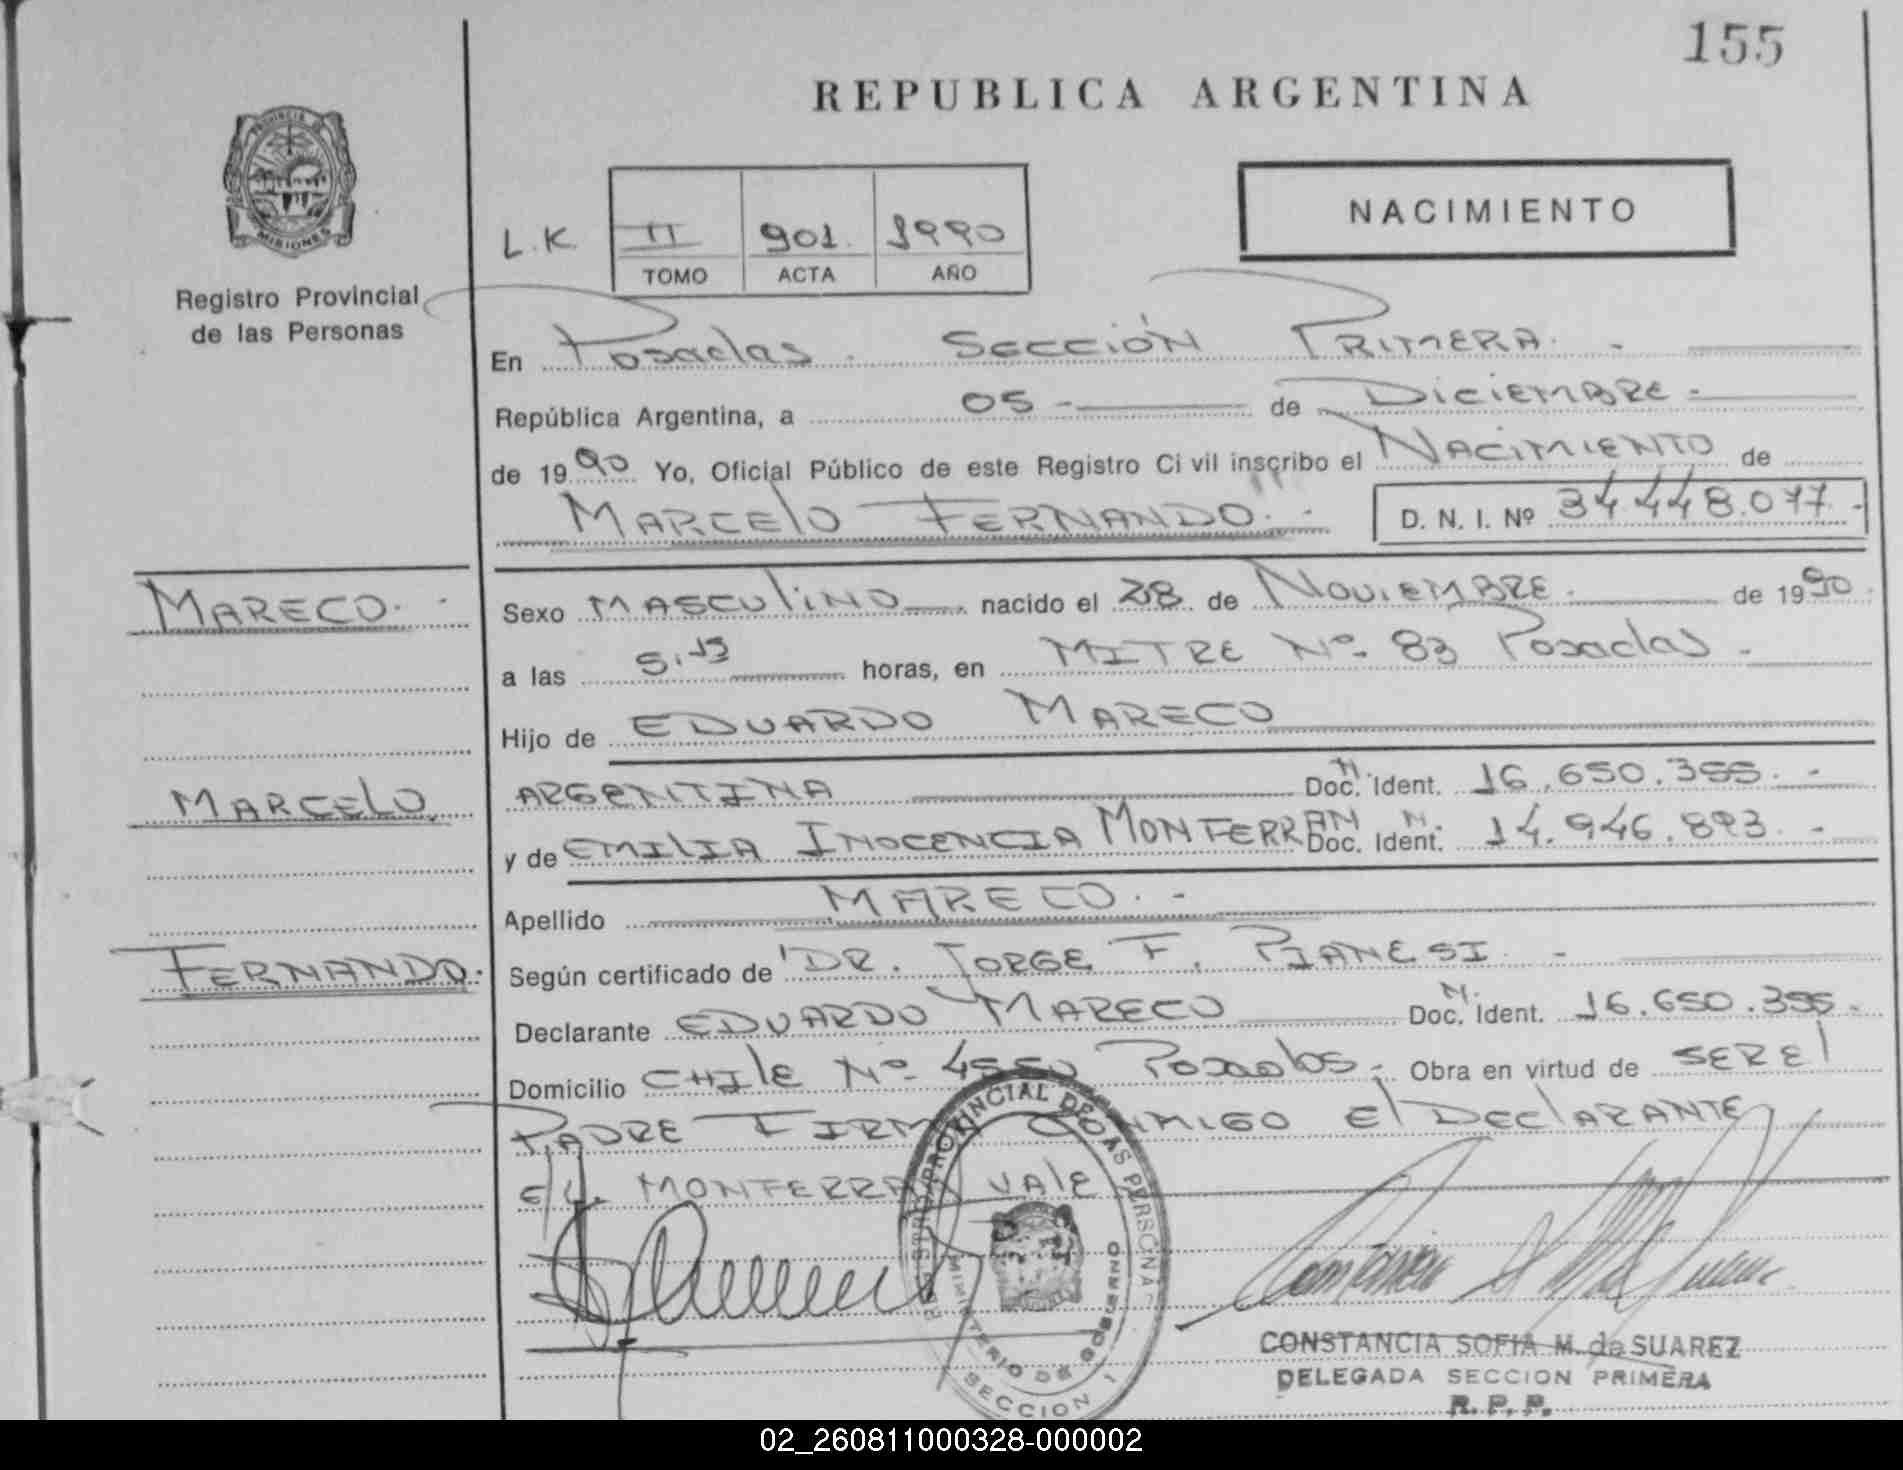 155
REPUBLICA ARGENTINA
PROVINCIA DE
MISIONES
Registro Provincial
de las Personas
NACIMIENTO
L.K. II 901. 1990
TOMO ACTA AÑO
En Posadas. SECCIÓN PRIMERA.
República Argentina, a 05 - de DICIEMBRE -
de 1990 Yo, Oficial Público de este Registro Civil inscribo el NACIMIENTO de
MARCELO FERNANDO. - D. N. I. Nº 34.448.077.-
MARECO.
Sexo MASCULINO nacido el 28 de NOVIEMBRE. de 1990.
a las 5,15 horas, en MITRE Nº 83 Posadas -
Hijo de EDUARDO MARECO
ARGENTINA M. Doc. Ident. 16.650.355. -
MARCELO.
y de EMILIA INOCENCIA MONTERRAN M. Doc. Ident. 14.946.893. -
Apellido MARECO. -
FERNANDO.
Según certificado de DR. JORGE F. PIANESI. -
Declarante EDUARDO MARECO M. Doc. Ident. 16.650.355.
Domicilio CHILE Nº 4550 Posadas. Obra en virtud de SER El
PADRE FIRMA CONMIGO El DEClARANTE
E/L. MONTERRAN VAlE
REGISTRO PROVINCIAL DE LAS PERSONAS
MINISTERIO DE GOBIERNO
SECCION 1
CONSTANCIA SOFIA M. de SUAREZ
DELEGADA SECCION PRIMERA
R. P. P.
02_260811000328-000002